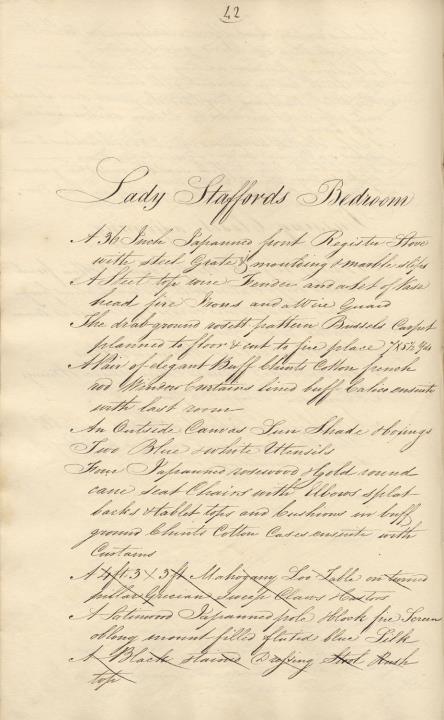 42
Lady Staffords Bedroom
A 36 Inch Japanned front Register Stove
with steel Grate & moulding & marble slips
A Steel top wire Fender and a set of Vase
head fire Irons and a Wire Guard
The drab ground rosett pattern Brussels Carpet
planned to floor & cut to fire place
A Pair of elegant Buff Chintz Cotton french
rod Window Curtains lined buff Calico ensuite
with last room
An Outside Canvas Sun Shade & boxings
Two Blue & white Utensils
Four Japanned rosewood & Gold round
cane seat Chairs with Elbows splat
backs & tablet tops and Cushions in buff
ground Chintz Cotton Cases ensuite with
Curtains
A 4 ft 3 x 3 ft Mahogany Loo Table on turned
pillar Grecian Sweep Claws & Castors
A Satinwood Japanned pole & block fire Screen
oblong mount filled fluted blue Silk
A Black stained Dressing Stool Rush
top